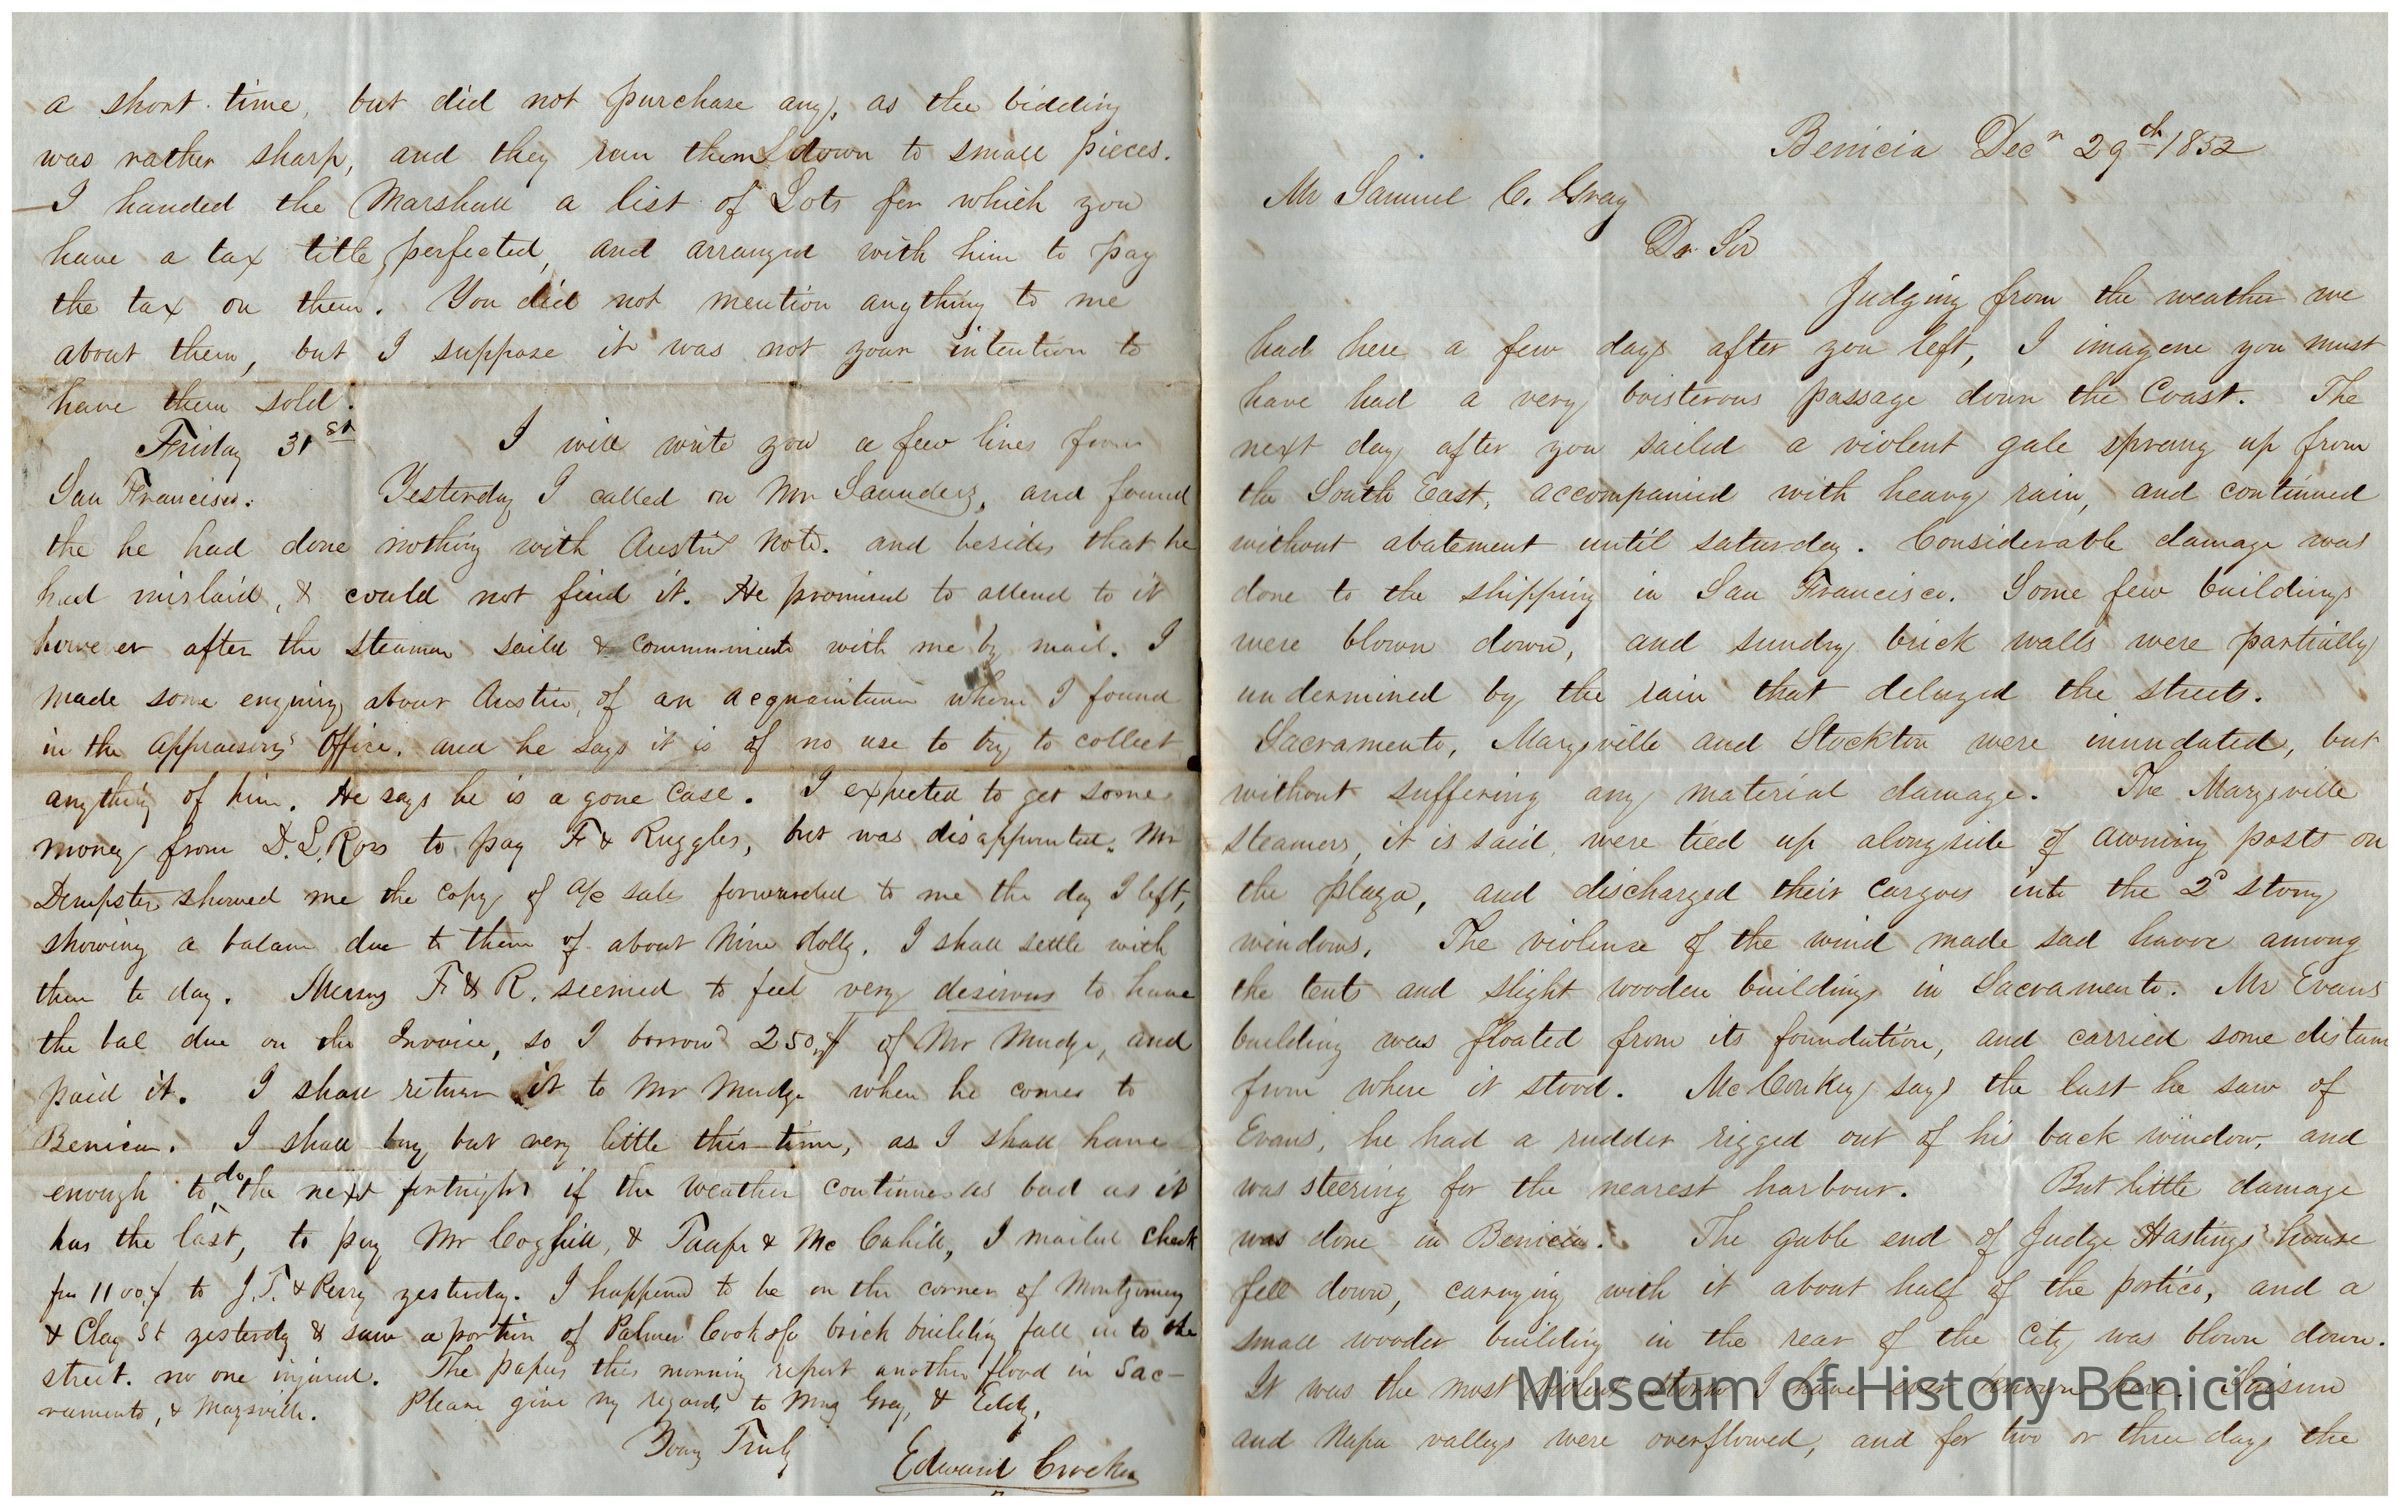 a short time, but did not purchase any, as the bidding
was rather sharp, and they run them down to small pieces.
I handed the Marshall a list of Lots for which you
have a tax title perfected, and arranged with him to pay
the tax on them. You did not mention anything to me
about them, but I suppose it was not your intention to
have them sold.
Friday 31st I will write you a few lines from
San Francisco. Yesterday I called on Mr Saunders, and found
the he had done nothing with Austin Note. and besides that he
had mislaid, & could not find it. He promised to attend to it
however after the steamer sails & communicate with me by mail. I
made some enquiry about Austin, of an acquaintance whom I found
in the Appraisers Office. and he says it is of no use to try to collect
anything of him. He says he is a gone case. I expected to get some
money from D. L. Ross to pay F & Ruggles, but was disappointed. Mr
Dempster showed me the copy of a/c sales forwarded to me the day I left,
showing a balance due to them of about Nine dolls. I shall settle with
them to day. Messrs F & R. seemed to feel very desirous to have
the bal due on the Invoice, so I borrowd 250$ of Mr Mudge, and
paid it. I shall return it to Mr Mudge when he comes to
Benicia. I shall buy but very little this time, as I shall have
enough to do the next fortnight if the weather continues as bad as it
has the last, to pay Mr Coghill, & Taaffe & McCahill, I mailed check
for 1100$ to J. T. & Perry yesterday. I happend to be on the corner of Montgomery
& Clay St yesterdy & saw a portion of Palmer Cook & Co brick building fall into the
street. no one injured. The papers this morning report another flood in Sac-
ramento, & Marysville. Please give my regards to Mrs Gray, & Eddy.
Yours Truly
Edward Crocker
Benicia Decr 29th 1852
Mr Samuel C. Gray
Dr Sir
Judging from the weather we
had here a few days after you left, I imagene you must
have had a very boisterous passage down the Coast. The
next day after you sailed a violent gale sprang up from
the South East, accompanied with heavy rain, and continued
without abatement until saturday. Considerable damage was
done to the shipping in San Francisco. Some few buildings
were blown down, and sundry brick walls were partially
undermined by the rain that deluged the streets.
Sacramento, Marysville and Stockton were inundated, but
without suffering any material damage. The Marysville
steamers, it is said, were tied up alongside of awning posts on
the plaza, and discharged their cargoes into the 2d story
windows. The violence of the wind made sad havoc among
the tents and slight wooden buildings in Sacramento. Mr Evans
building was floated from its foundation, and carried some distance
from where it stood. McConkey says the last he saw of
Evans, he had a rudder rigged out of his back window, and
was steering for the nearest harbour. But little damage
was done in Benicia. The gable end of Judge Hastings' house
fell down, carrying with it about half of the portico, and a
small wooden building in the rear of the City was blown down.
It was the most violent storm I have ever known here. Suisun
and Napa valleys were overflowed, and for two or three days the
Museum of History Benicia